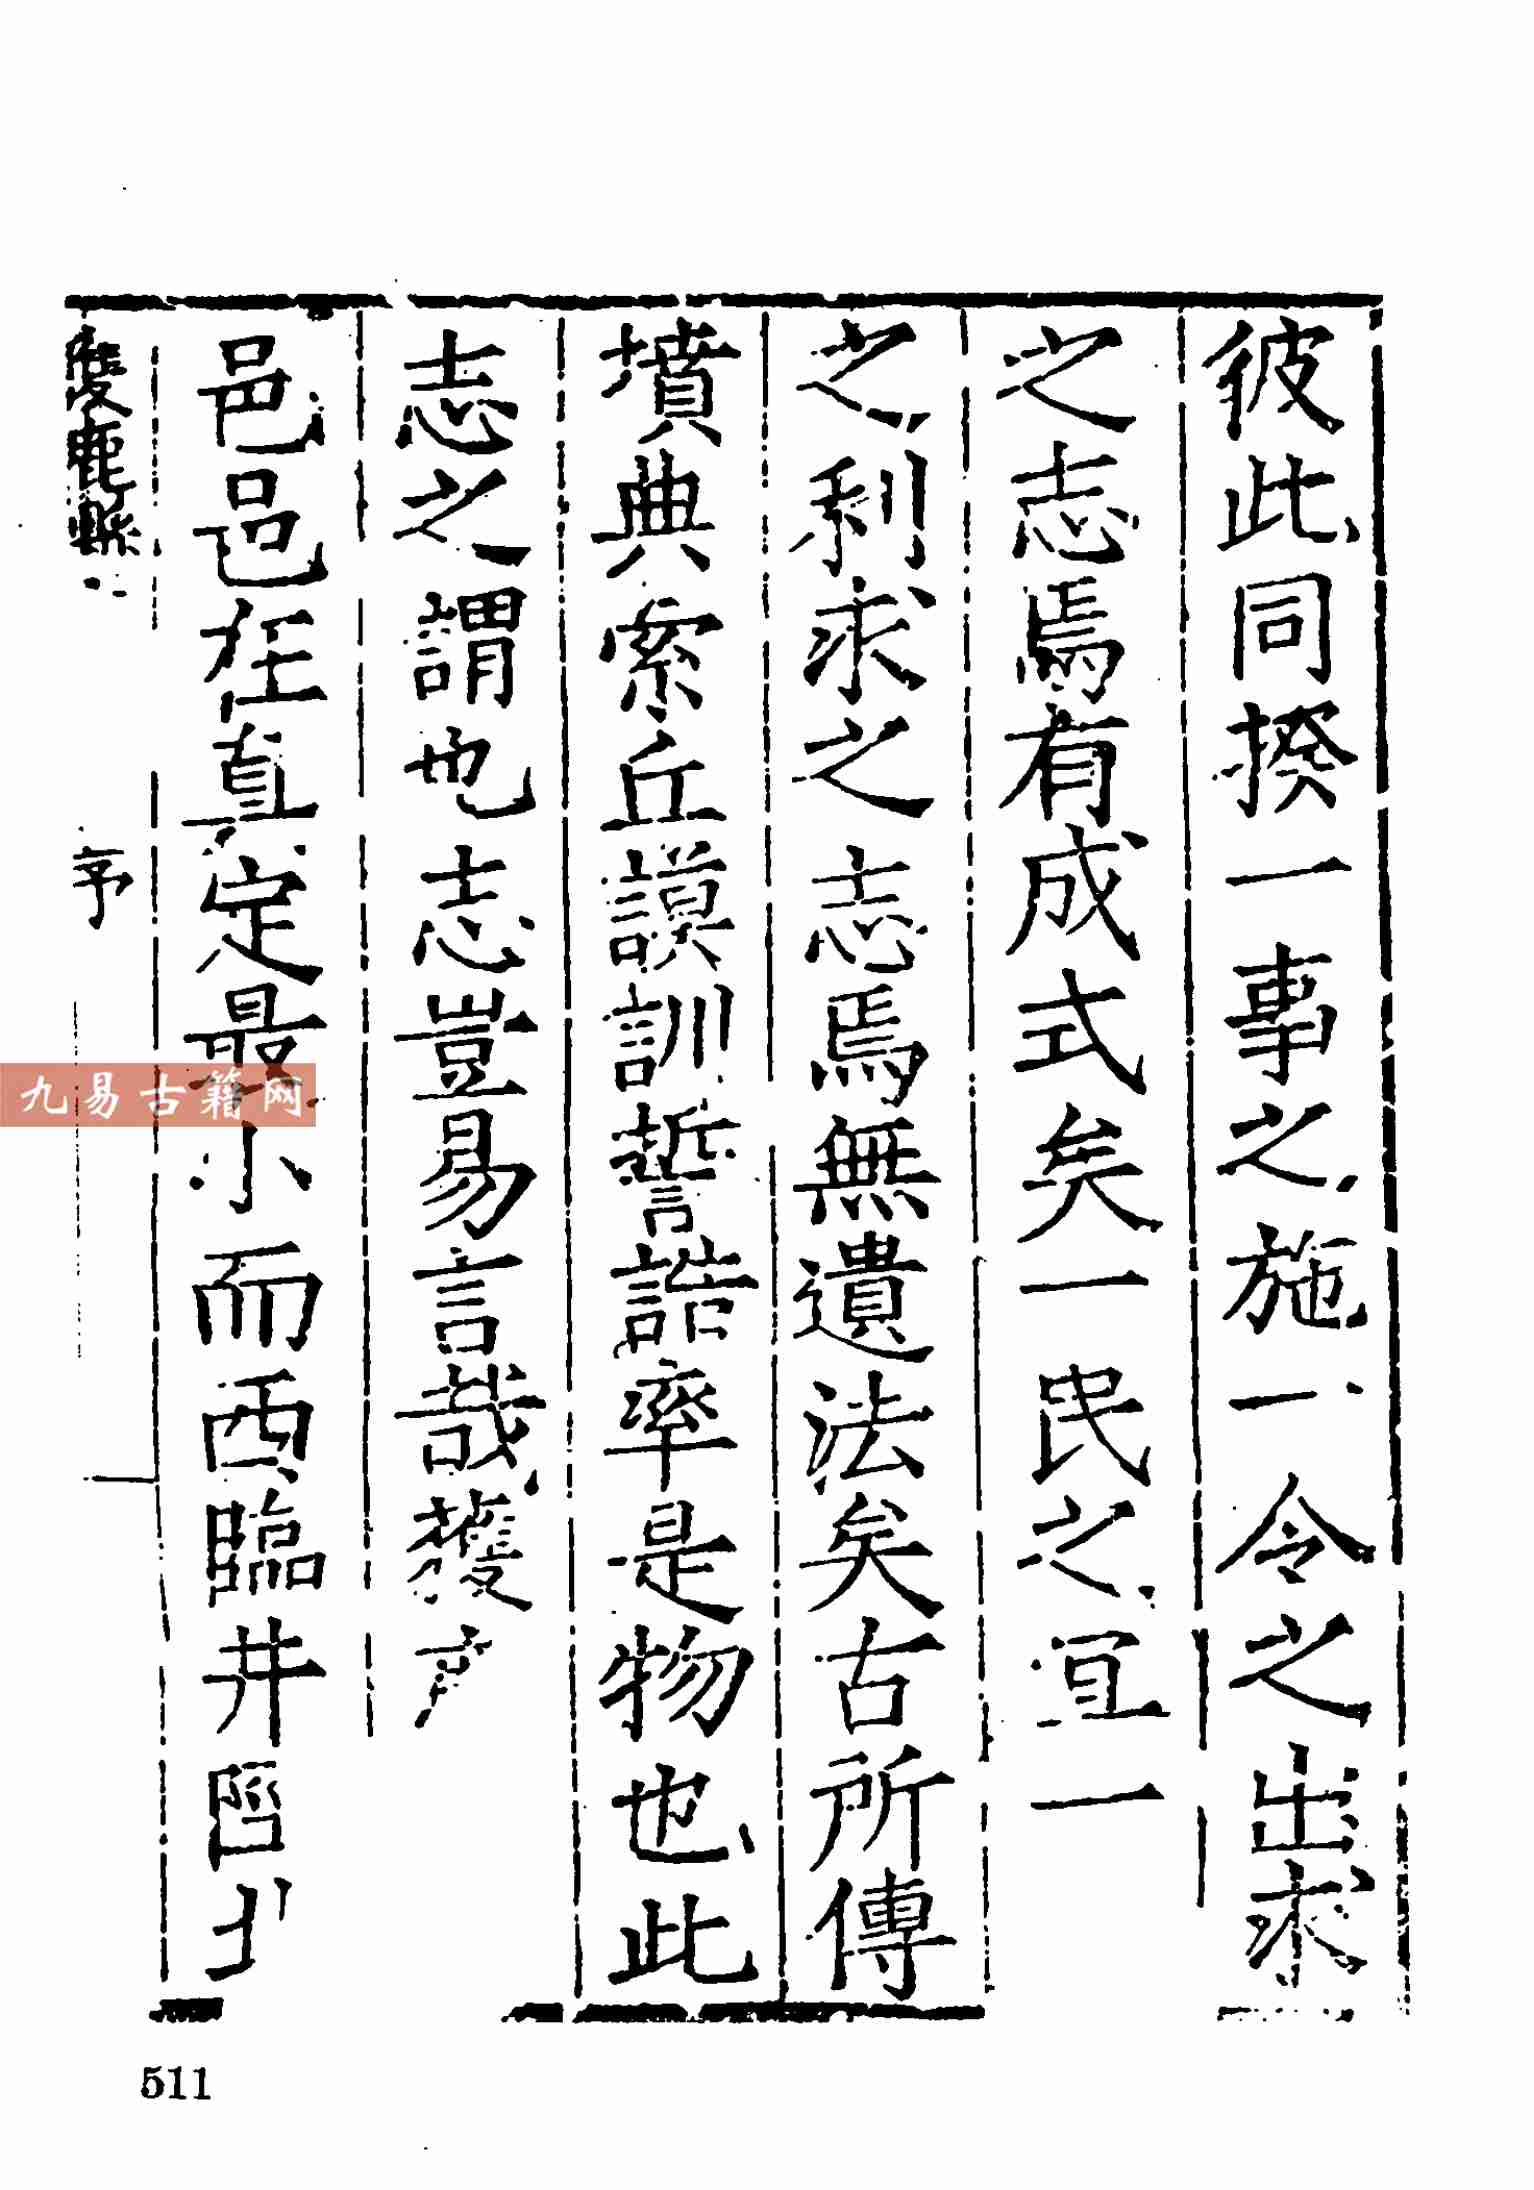 彼此同揆一事之施一令之出求
之志焉有成式矣一民之宜一
之利求之志焉無遺法矣古所傳
墳典索丘謨訓誓誥率是物也此
志之謂也志豈易言哉獲
邑邑在真定最小而西臨井陘
獲鹿縣
序
九易古籍网
511